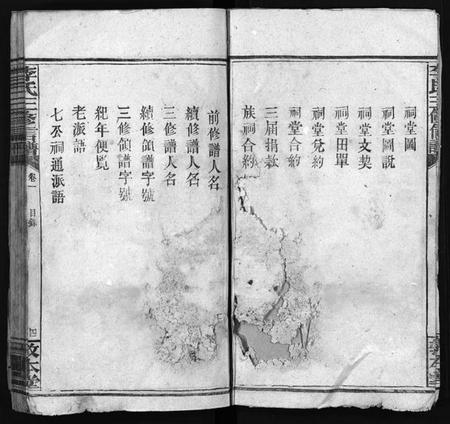 祠堂圖
祠堂圖說
祠堂文契
祠堂田單
祠堂兌約
祠堂合約
三屆捐款
族祠合約
前修譜人名
續修譜人名
三修譜人名
續修領譜字號
三修領譜字號
紀年便覽
老派語
七公祠通派語
李氏三修族譜
卷一
目錄
四
敦本堂